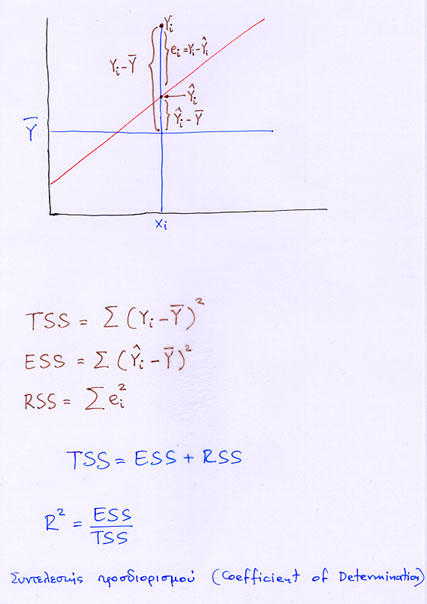 Yi
ei = Yi - Ŷi
Yi - Ȳ
Ŷi
Ŷi - Ȳ
Ȳ
xi
TSS = Σ (Yi - Ȳ)²
ESS = Σ (Ŷi - Ȳ)²
RSS = Σ ei²
TSS = ESS + RSS
R² = ESS / TSS
Συντελεστής προσδιορισμού (Coefficient of Determination)